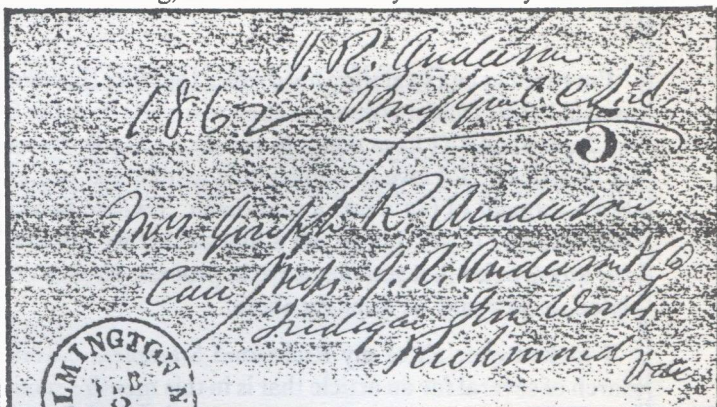 J. R. Anderson
1862 Brig Genl.
5
Mrs Joseph R. Anderson
Care Messrs J. R. Anderson & Co
Tredegar Iron Works
Richmond
LMINGTON N
FEB